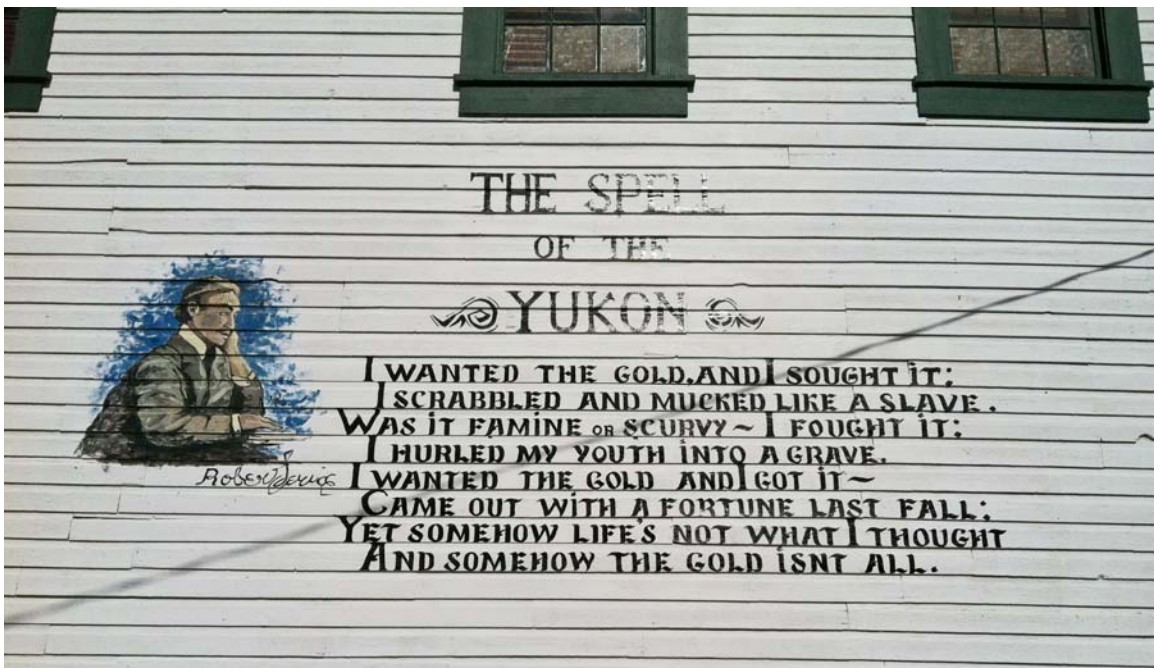 THE SPELL
OF THE
YUKON
I WANTED THE GOLD, AND I SOUGHT IT;
I SCRABBLED AND MUCKED LIKE A SLAVE.
WAS IT FAMINE OR SCURVY ~ I FOUGHT IT;
I HURLED MY YOUTH INTO A GRAVE.
Robert Service
I WANTED THE GOLD AND I GOT IT ~
CAME OUT WITH A FORTUNE LAST FALL;
YET SOMEHOW LIFE'S NOT WHAT I THOUGHT
AND SOMEHOW THE GOLD ISNT ALL.